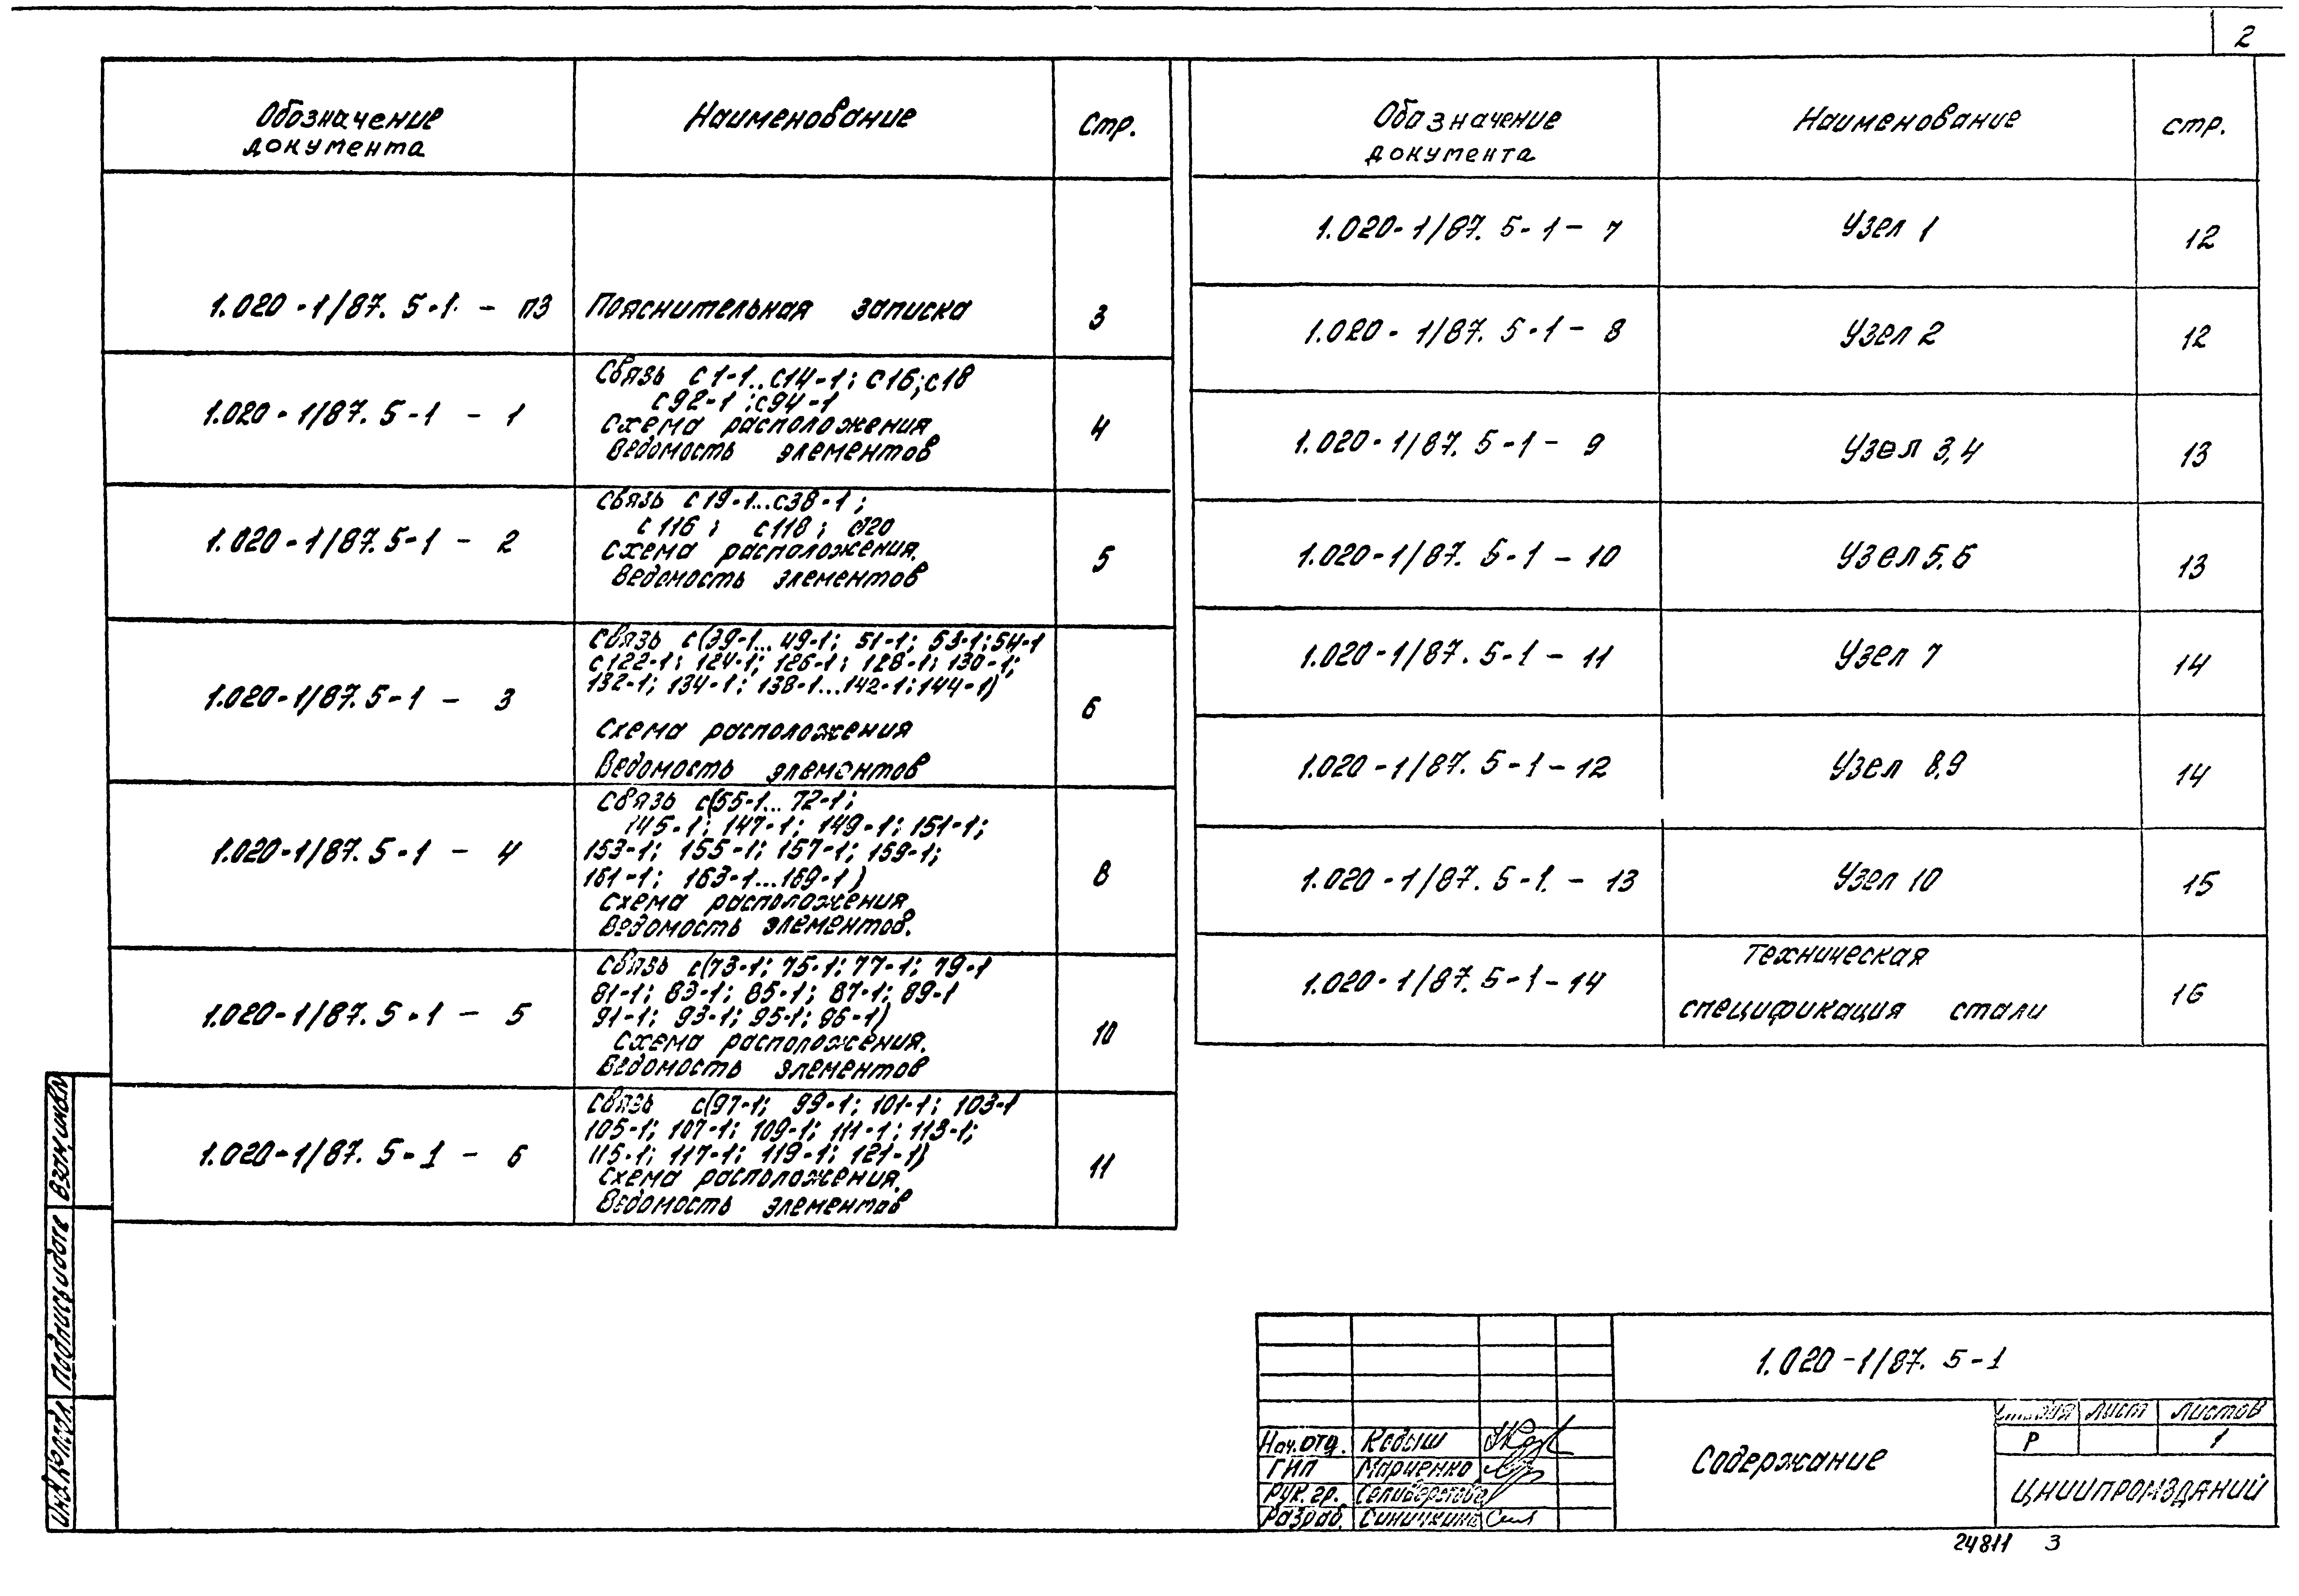 2
Обозначение
документа
Наименование
Стр.
1.020-1/87. 5-1 - ПЗ
Пояснительная записка
3
1.020-1/87. 5-1 - 1
Связь С1-1..С14-1; С16; С18
С92-1; С94-1
Схема расположения
Ведомость элементов
4
1.020-1/87. 5-1 - 2
Связь С19-1...С38-1;
С116; С118; С120
Схема расположения.
Ведомость элементов
5
1.020-1/87. 5-1 - 3
Связь С(39-1... 49-1; 51-1; 53-1; 54-1
С122-1; 124-1; 126-1; 128-1; 130-1;
132-1; 134-1; 138-1...142-1; 144-1)
Схема расположения
Ведомость элементов
6
1.020-1/87. 5-1 - 4
Связь С(55-1... 72-1;
145-1; 147-1; 149-1; 151-1;
153-1; 155-1; 157-1; 159-1;
161-1; 163-1...169-1)
Схема расположения
Ведомость элементов.
8
1.020-1/87. 5-1 - 5
Связь С(73-1; 75-1; 77-1; 79-1
81-1; 83-1; 85-1; 87-1; 89-1
91-1; 93-1; 95-1; 96-1)
Схема расположения.
Ведомость элементов
10
1.020-1/87. 5-1 - 6
Связь С(97-1; 99-1; 101-1; 103-1
105-1; 107-1; 109-1; 111-1; 113-1;
115-1; 117-1; 119-1; 121-1)
Схема расположения.
Ведомость элементов
11
Обозначение
документа
Наименование
стр.
1.020-1/87. 5-1 - 7
Узел 1
12
1.020-1/87. 5-1 - 8
Узел 2
12
1.020-1/87. 5-1 - 9
Узел 3,4
13
1.020-1/87. 5-1 - 10
Узел 5.6
13
1.020-1/87. 5-1 - 11
Узел 7
14
1.020-1/87. 5-1 - 12
Узел 8,9
14
1.020-1/87. 5-1. - 13
Узел 10
15
1.020-1/87. 5-1 - 14
Техническая
спецификация стали
16
Взам.инв.N
Подпись и дата
Инв.N подл.
1.020-1/87. 5-1
Нач.отд. Кодыш
ГИП Мариенко
Рук.гр. Селиверстова
Разраб. Синичкина
Содержание
Стадия Лист Листов
Р 1
ЦНИИПРОМЗДАНИЙ
24811 3